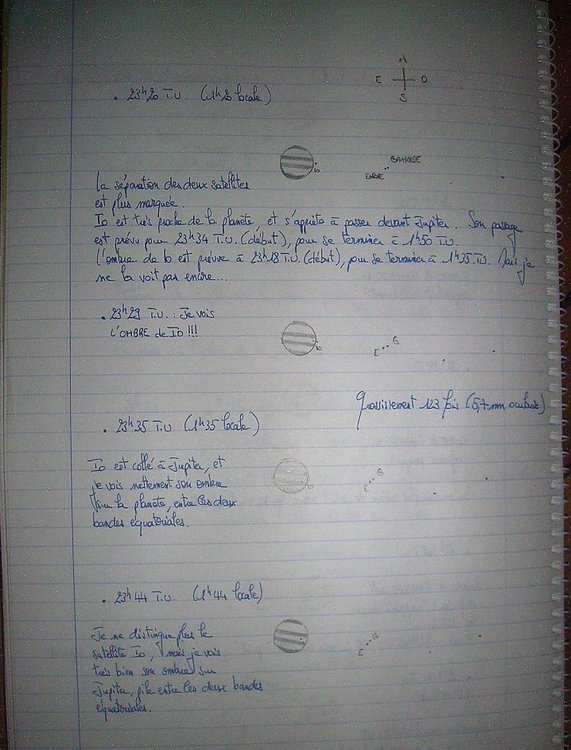 N
E O
S
. 23h20 T.U. (1h20 locale)
GANYMEDE
Io
EUROPE
La séparation des deux satellites
est plus marquée.
Io est très proche de la planète, et s'apprête à passer devant Jupiter. Son passage
est prévu pour 23h34 T.U. (début), pour se terminer à 1h50 T.U.
L'ombre de Io est prévue à 23h18 T.U. (début), pour se terminer à 1h35 T.U. Mais je
ne la voit pas encore...
. 23h29 T.U. : Je vois
L'OMBRE de IO !!!
Io
E G
Grossissement 123 fois (5,7 mm oculaire)
. 23h35 T.U (1h35 locale)
Io est collé à Jupiter, et
je vois nettement son ombre
sur la planète, entre les deux
bandes équatoriales.
Io
E G
. 23h44 T.U. (1h44 locale)
Je ne distingue plus le
satellite Io, mais je vois
très bien son ombre sur
Jupiter, pile entre les deux bandes
équatoriales.
E G